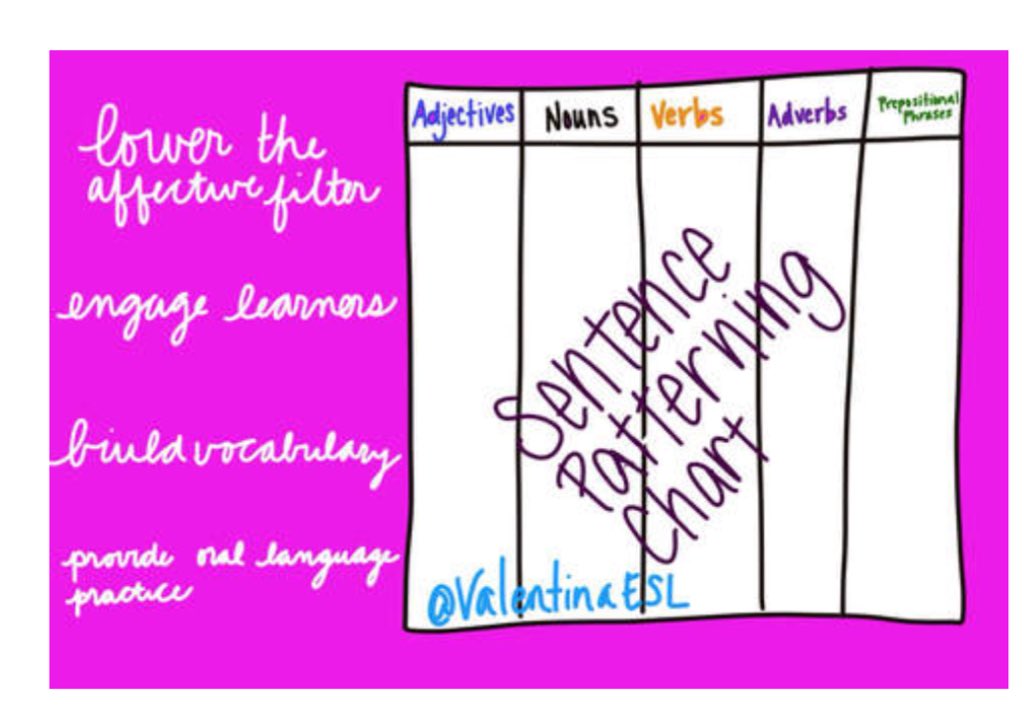 lower the
affective filter
engage learners
biuld vocabulary
provide oral language
practice
Adjectives Nouns Verbs Adverbs Prepositional
Phrases
Sentence
Patterning
Chart
@ValentinaESL